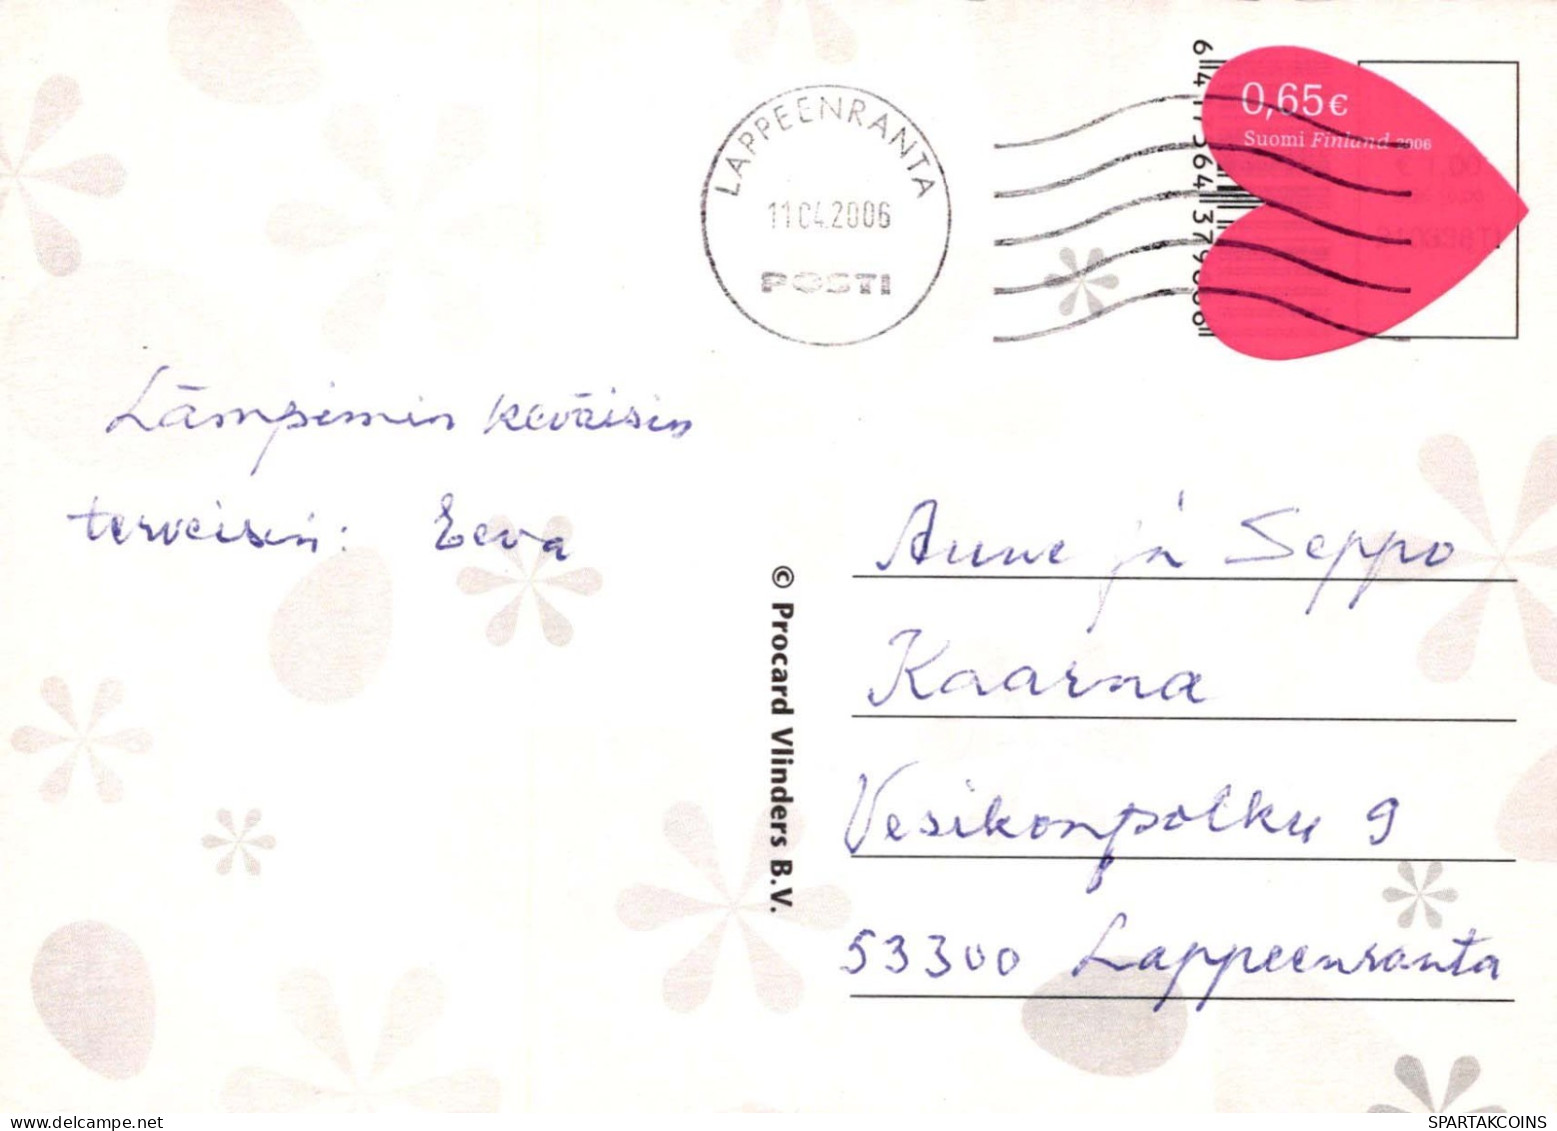 LAPPEENRANTA
11.04.2006
POSTI
0,65€
Suomi Finland 2006
Lämpimin keväisin
terveisin: Eeva
© Procard Vlinders B.V.
Anne ja Seppo
Kaarna
Vesikonpolku 9
53300 Lappeenranta
SPARTAKCOINS.COM
SPARTAKCOINS.COM